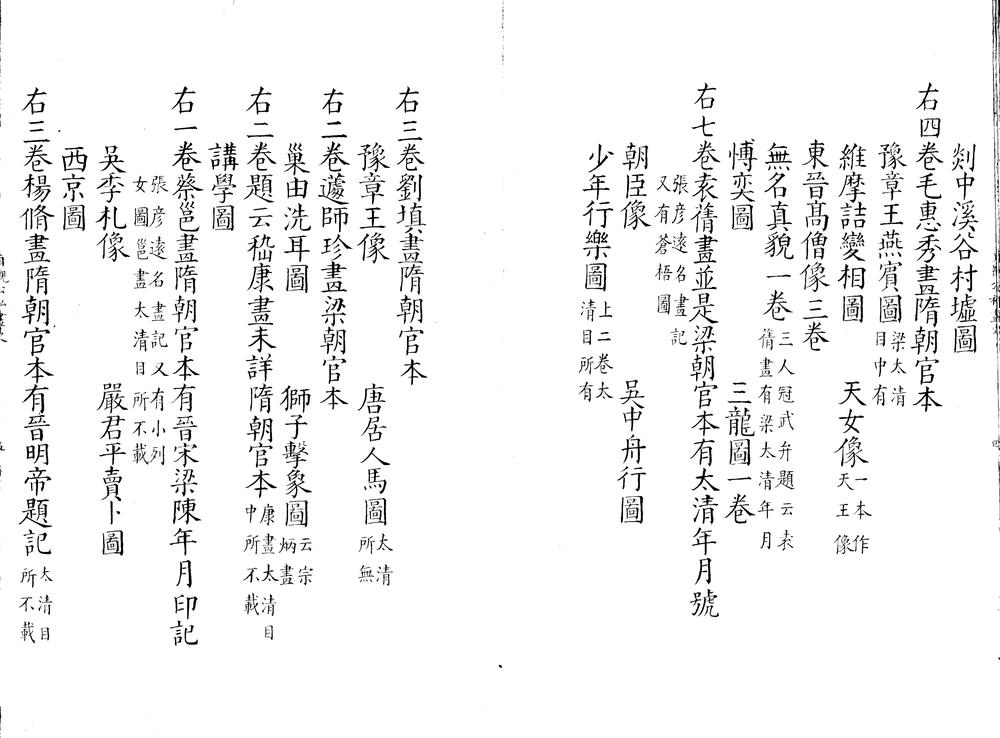 剡中溪谷村墟圖
右四卷毛惠秀畫隋朝官本
豫章王燕賓圖梁太清目中有
維摩詰變相圖　天女像一本作天王像
東晉髙僧像三卷
無名真貌一卷三人冠武弁題云袁蒨畫有梁太清年月
博奕圖　三龍圖一卷
右七卷袁蒨畫並是梁朝官本有太清年月號
張彦遠名畫記又有蒼梧圖
朝臣像　吳中舟行圖
少年行樂圖上二卷太清目所有
右三卷劉填畫隋朝官本
豫章王像　唐居人馬圖太清所無
右二卷蘧師珍畫梁朝官本
巢由洗耳圖　獅子擊象圖云宗炳畫
右二卷題云嵇康畫未詳隋朝官本康畫太清目中所不載
講學圖
右一卷蔡邕畫隋朝官本有晉宋梁陳年月印記
張彦遠名畫記又有小列女圖邕畫太清目所不載
吳季札像　嚴君平賣卜圖
西京圖
右三卷楊脩畫隋朝官本有晉明帝題記太清目所不載